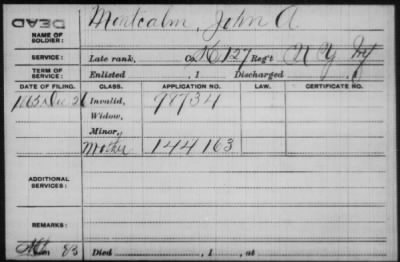 DEAD
NAME OF SOLDIER: Montcalm, John A
SERVICE: Late rank, Co K, 127 Reg't N Y Inf
TERM OF SERVICE: Enlisted , 1 Discharged , 1
DATE OF FILING. CLASS. APPLICATION NO. LAW. CERTIFICATE NO.
Dec 26 Invalid, 90934
Widow,
Minor,
Mother 144163
ADDITIONAL SERVICES:
REMARKS:
83 Died , 1 , at